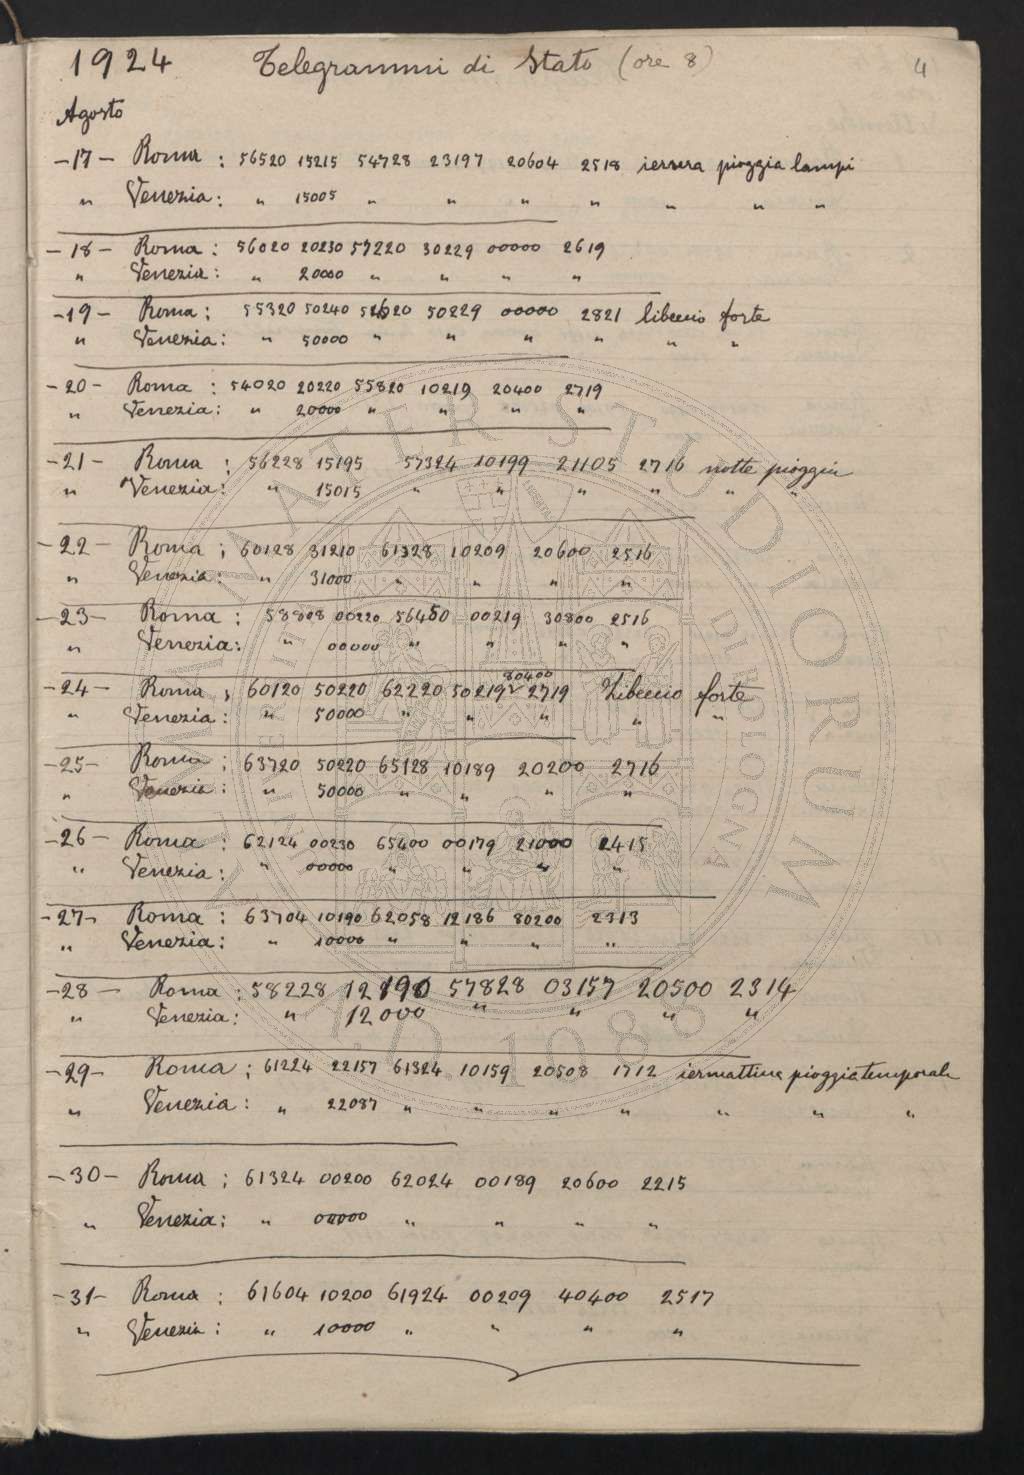 4
1924 Telegrammi di Stato (ore 8)
Agosto
-17- Roma : 56520 15215 54728 23197 20604 2518 iersera pioggia lampi
" Venezia : " 15005 " " " " " " "
-18- Roma : 56020 20230 57220 30229 00000 2619
" Venezia : " 20000 " " " "
-19- Roma : 55320 50240 52620 50229 00000 2821 libeccio forte
" Venezia : " 50000 " " " " " "
-20- Roma : 54020 20220 55820 10219 20400 2719
" Venezia : " 20000 " " " "
-21- Roma : 56228 15195 57324 10199 21105 2716 notte pioggia
" Venezia : " 15015 " " " " " "
-22- Roma : 60128 31210 61328 10209 20600 2516
" Venezia : " 31000 " " " "
-23- Roma : 58808 00220 56450 00219 30800 2516
" Venezia : " 00000 " " " "
80400
-24- Roma : 60120 50220 62220 50219 2719 Libeccio forte
" Venezia : " 50000 " " " " "
-25- Roma : 63720 50220 65128 10189 20200 2716
" Venezia : " 50000 " " " "
-26- Roma : 62124 00230 65400 00179 21000 2415
" Venezia : " 00000 " " " "
-27- Roma : 63704 10190 62058 12186 80200 2313
" Venezia : " 10000 " " " "
-28- Roma : 58228 12190 57828 03157 20500 2314
" Venezia : " 12000 " " " "
-29- Roma : 61224 22157 61324 10159 20508 1712 iermattina pioggia temporale
" Venezia : " 22087 " " " " " " "
-30- Roma : 61324 00200 62024 00189 20600 2215
" Venezia : " 00000 " " " "
-31- Roma : 61604 10200 61924 00209 40400 2517
" Venezia : " 10000 " " " "
ALMA MATER STUDIORUM
A.D. 1088